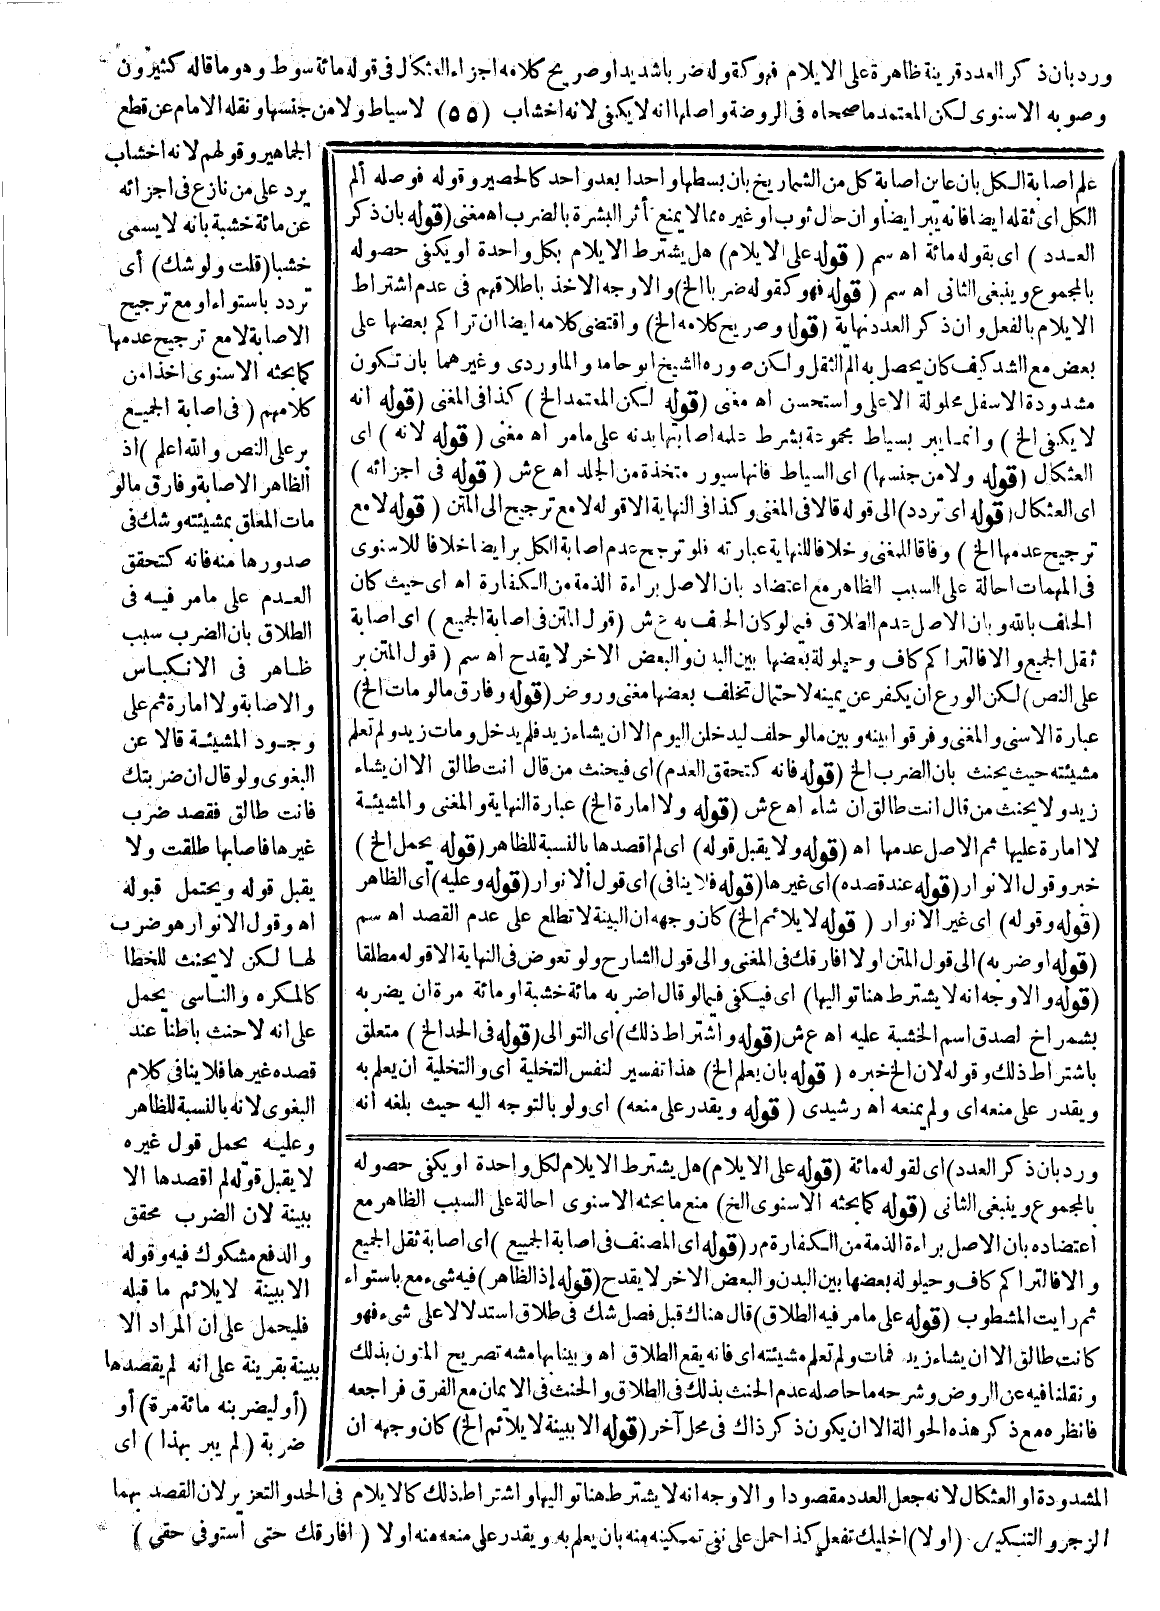 ورد بان ذكر العدد قرينة ظاهرة على الايلام فهو كقوله ضربا شديدا وصريح كلامه اجزاء العثكال فى قوله مائة سوط وهو ما قاله كثيرون
وصوبه الاسنوى لكن المعتمد ما صححاه فى الروضة واصلها انه لا يكفى لانه اخشاب (٥٥) لا سياط ولا من جنسها ونقله الامام عن قطع
الجماهير وقولهم لانه اخشاب
يرد على من نازع فى اجزائه
عن مائة خشبة بانه لا يسمى
خشبا (قلت ولو شك) أى
تردد باستواء او مع ترجيح
الاصابة لا مع ترجيح عدمها
كما بحثه الاسنوى اخذا من
كلامهم (فى اصابة الجميع
بر على النص والله اعلم) اذ
الظاهر الاصابة وفارق مالو
مات المعلق بمشيئته وشك فى
صدورها منه فانه كتحقق
العدم على ما مر فيه فى
الطلاق بان الضرب سبب
ظاهر فى الانكباس
والاصابة ولا امارة ثم على
وجود المشيئة قالا عن
البغوى ولو قال ان ضربتك
فانت طالق فقصد ضرب
غيرها فاصابها طلقت ولا
يقبل قوله ويحتمل قبوله
اه وقول الانوار هو ضرب
لها لكن لا يحنث للخطا
كالمكره والناسى يحمل
على انه لا حنث باطنا عند
قصده غيرها فلا ينافى كلام
البغوى لانه بالنسبة للظاهر
وعليه يحمل قول غيره
لا يقبل قوله لم اقصدها الا
ببينة لان الضرب محقق
والدفع مشكوك فيه وقوله
الا ببينة لا يلائم ما قبله
فليحمل على ان المراد الا
ببينة بقرينة على انه لم يقصدها
(أو ليضربنه مائة مرة) أو
ضربة (لم يبر بهذا) اى
علم اصابة الكل بان عاين اصابة كل من الشماريخ بان بسطها واحدا بعد واحد كالحصير وقوله فوصله ألم
الكل اى ثقله ايضا فانه يبر ايضا وان حال ثوب او غيره مما لا يمنع تأثر البشرة بالضرب اه مغنى (قوله بان ذكر
العدد) اى بقوله مائة اه سم (قوله على الايلام) هل يشترط الايلام بكل واحدة او يكفى حصوله
بالمجموع وينبغى الثانى اه سم (قوله فهو كقوله ضربا الخ) والاوجه الاخذ باطلاقهم فى عدم اشتراط
الايلام بالفعل وان ذكر العدد نهاية (قوله وصريح كلامه الخ) واقتضى كلامه ايضا ان تراكم بعضها على
بعض مع الشد كيف كان يحصل به الم الثقل ولكن صوره الشيخ ابو حامد والماوردى وغيرهما بان تكون
مشدودة الاسفل محلولة الاعلى واستحسن اه مغنى (قوله لكن المعتمد الخ) كذا فى المغنى (قوله انه
لا يكفى الخ) وانما يبر بسياط مجموعة بشرط علمه اصابتها بدنه على ما مر اه مغنى (قوله لانه) اى
العثكال (قوله ولا من جنسها) اى السياط فانها سيور متخذة من الجلد اه ع ش (قوله فى اجزائه)
اى العثكال (قوله اى تردد) الى قوله قالا فى المغنى وكذا فى النهاية الا قوله لا مع ترجيح الى المتن (قوله لا مع
ترجيح عدمها الخ) وفاقا للمغنى وخلافا للنهاية عبارته فلو ترجح عدم اصابة الكل بر ايضا خلافا للاسنوى
فى المهمات احالة على السبب الظاهر مع اعتضاد بان الاصل براءة الذمة من الكفارة اه اى حيث كان
الحلف بالله وبان الاصل عدم الطلاق فيما لو كان الحلف به ع ش (قول المتن فى اصابة الجميع) اى اصابة
ثقل الجميع والا فالتراكم كاف وحيلولة بعضها بين البدن والبعض الاخر لا يقدح اه سم (قول المتن بر
على النص) لكن الورع ان يكفر عن يمينه لاحتمال تخلف بعضها مغنى وروض (قوله وفارق مالو مات الخ)
عبارة الاسنى والمغنى وفرقوا بينه وبين مالو حلف ليدخلن اليوم الا ان يشاء زيد فلم يدخل ومات زيد ولم تعلم
مشيئته حيث يحنث بان الضرب الخ (قوله فانه كتحقق العدم) اى فيحنث من قال انت طالق الا ان يشاء
زيد ولا يحنث من قال انت طالق ان شاء اه ع ش (قوله ولا امارة الخ) عبارة النهاية والمغنى والمشيئة
لا امارة عليها ثم الاصل عدمها اه (قوله ولا يقبل قوله) اى لم اقصدها بالنسبة للظاهر (قوله يحمل الخ)
خبر وقول الانوار (قوله عند قصده) اى غيرها (قوله فلا ينافى) اى قول الانوار (قوله وعليه) أى الظاهر
(قوله وقوله) اى غير الانوار (قوله لا يلائم الخ) كان وجهه ان البينة لا تطلع على عدم القصد اه سم
(قوله او ضربه) الى قول المتن اولا افارقك فى المغنى والى قول الشارح ولو تعوض فى النهاية الا قوله مطلقا
(قوله والاوجه انه لا يشترط هنا تواليها) اى فيكفى فيما لو قال اضربه مائة خشبة او مائة مرة ان يضربه
بشمراخ لصدق اسم الخشبة عليه اه ع ش (قوله واشتراط ذلك) اى التوالى (قوله فى الحد الخ) متعلق
باشتراط ذلك وقوله لان الخ خبره (قوله بان يعلم الخ) هذا تفسير لنفس التخلية اى والتخلية ان يعلم به
ويقدر على منعه اى ولم يمنعه اه رشيدى (قوله ويقدر على منعه) اى ولو بالتوجه اليه حيث بلغه انه
ورد بان ذكر العدد) اى لقوله مائة (قوله على الايلام) هل يشترط الايلام لكل واحدة او يكفى حصوله
بالمجموع وينبغى الثانى (قوله كما بحثه الاسنوى الخ) منع ما بحثه الاسنوى احالة على السبب الظاهر مع
اعتضاده بان الاصل براءة الذمة من الكفارة مر (قوله اى المصنف فى اصابة الجميع) اى اصابة ثقل الجميع
والا فالتراكم كاف وحيلولة بعضها بين البدن والبعض الاخر لا يقدح (قوله إذ الظاهر) فيه شىء مع باستواء
ثم رايت المشطوب (قوله على ما مر فيه الطلاق) قال هناك قبل فصل شك فى طلاق استدلالا على شىء فهو
كانت طالق الا ان يشاء زيد فمات ولم تعلم مشيئته اى فانه يقع الطلاق اه وبينا بهامشه تصريح المتون بذلك
ونقلنا فيه عن الروض وشرحه ما حاصله عدم الحنث بذلك فى الطلاق والحنث فى الايمان مع الفرق فراجعه
فانظره مع ذكر هذه الحوالة الا ان يكون ذكر ذاك فى محل آخر (قوله الا ببينة لا يلائم الخ) كان وجهه ان
المشدودة او العثكال لانه جعل العدد مقصودا والاوجه انه لا يشترط هنا تواليها واشتراط ذلك كالايلام فى الحد والتعزير لان القصد بهما
الزجر والتنكيل (او لا) اخليك تفعل كذا حمل على نفى تمكينه منه بان يعلم به ويقدر على منعه منه او لا (افارقك حتى أستوفى حقى)